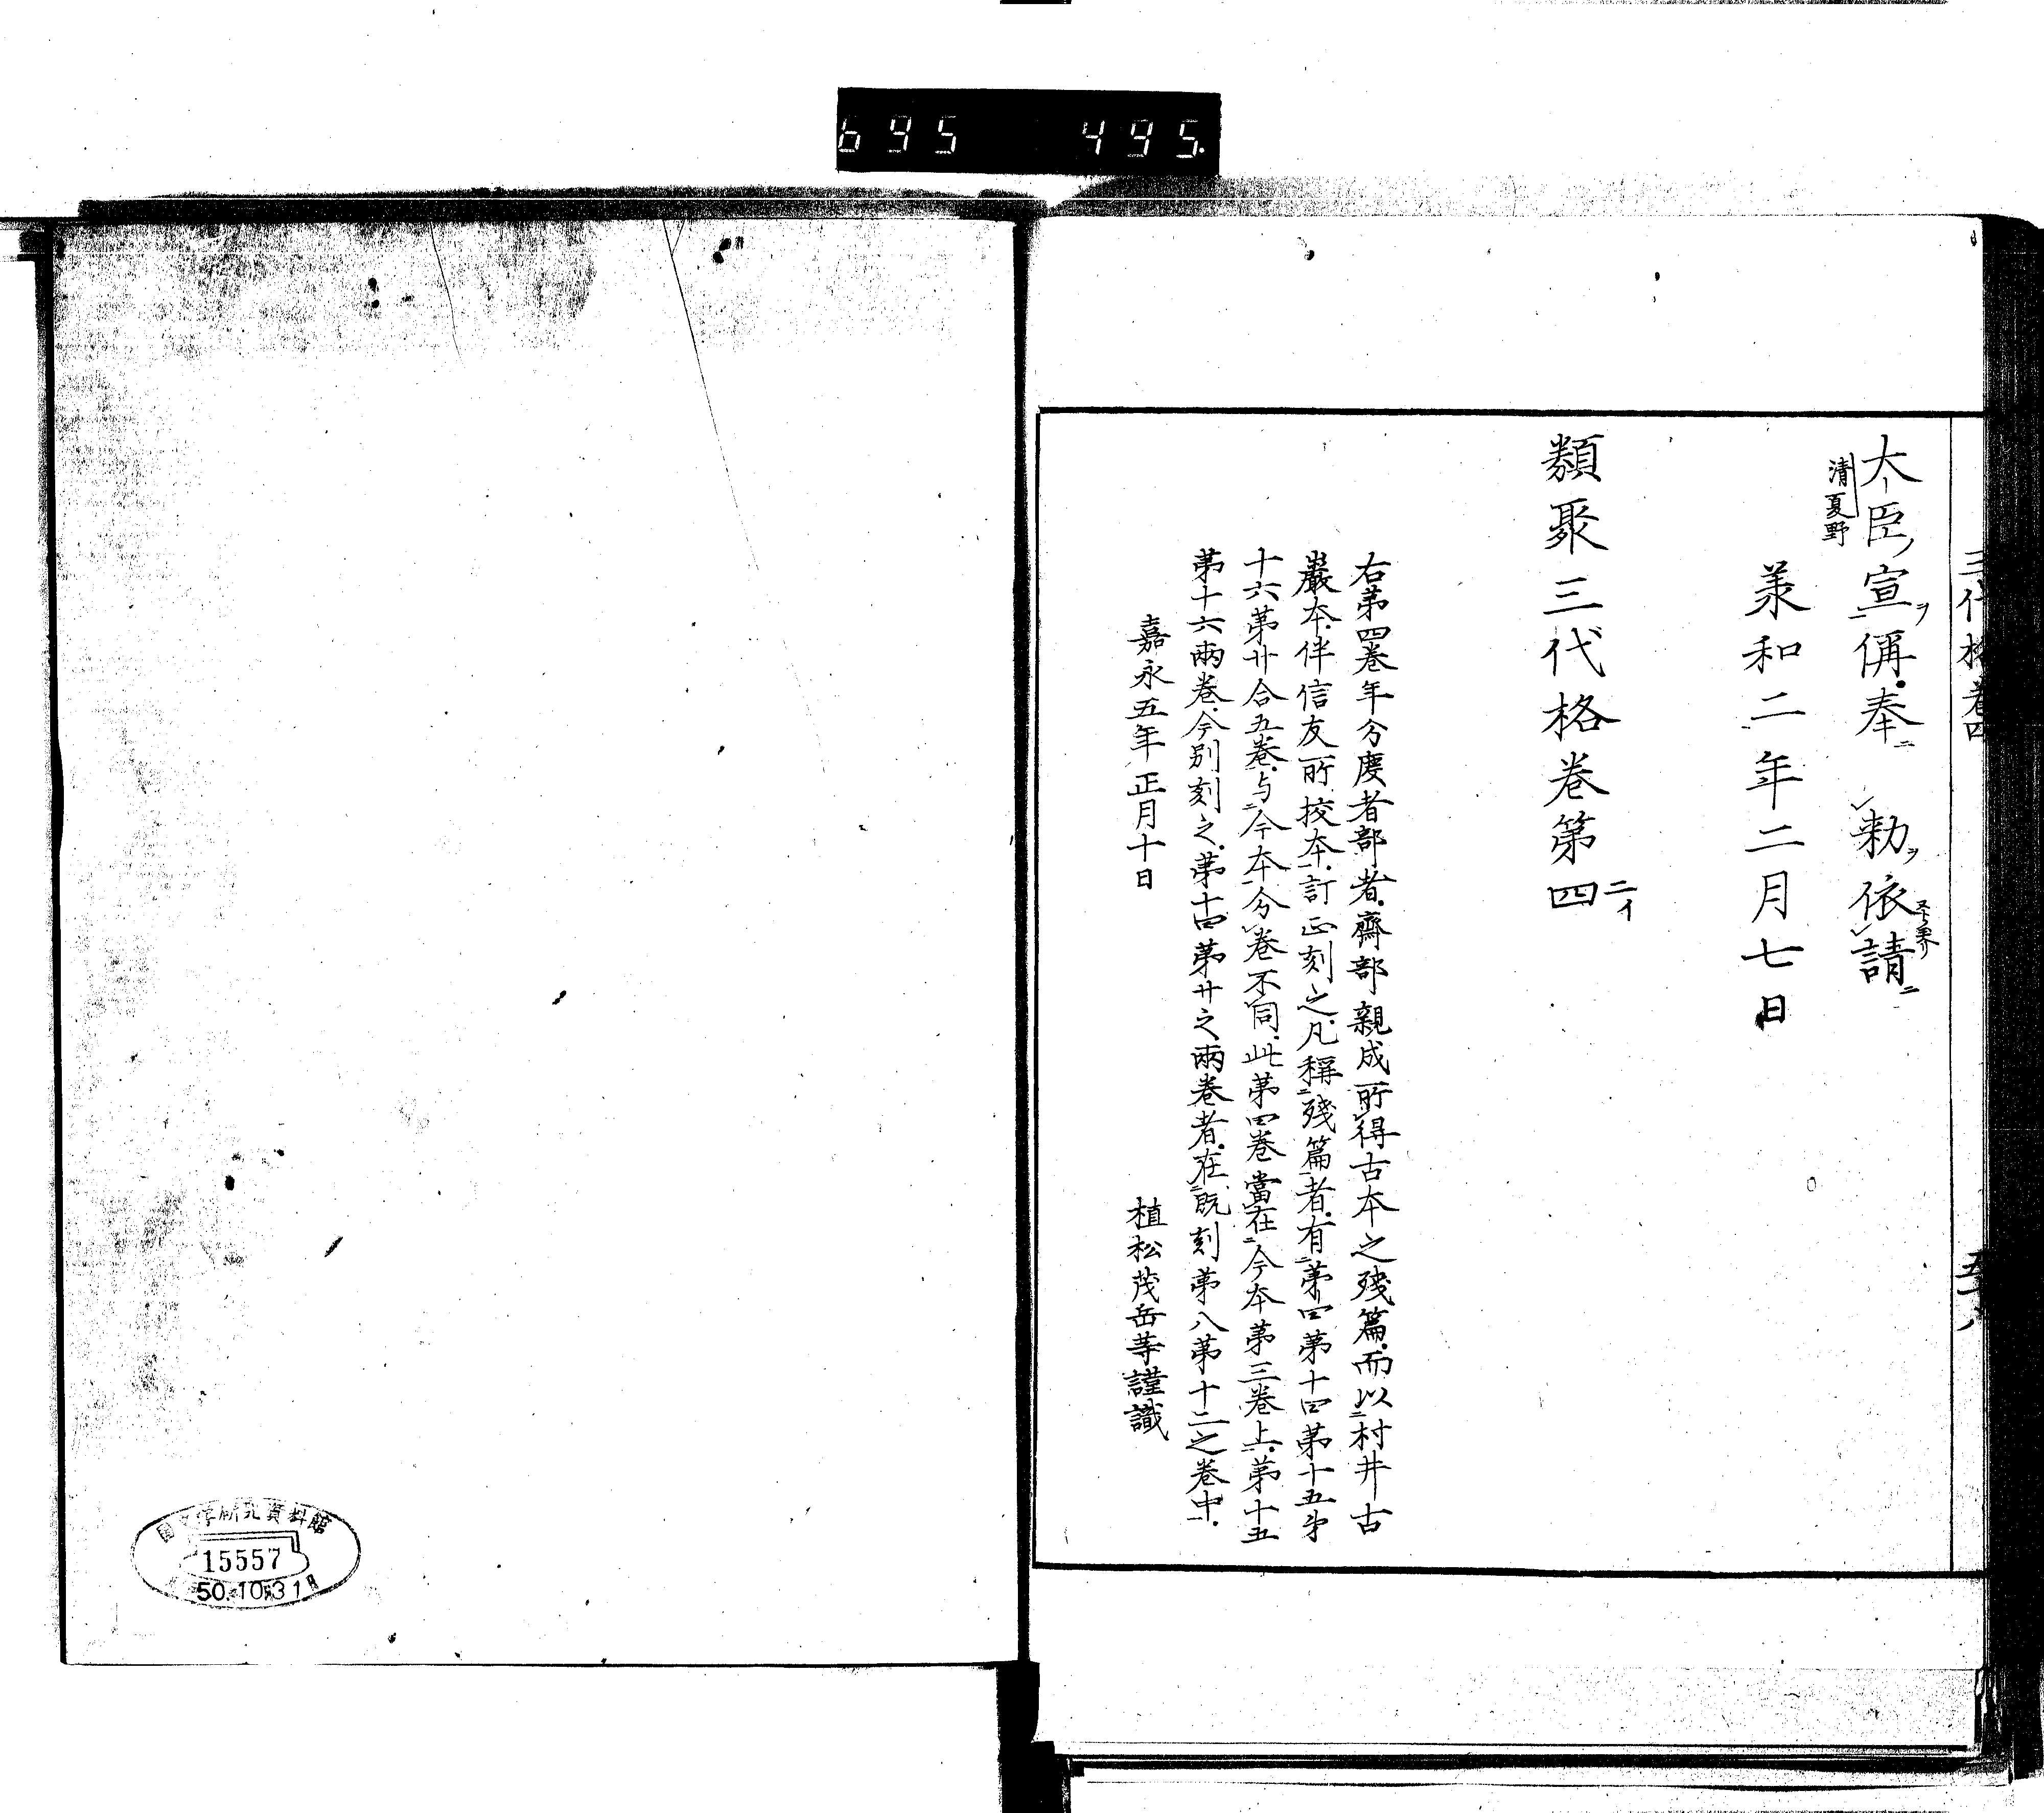 695 495.
三代格卷四
大臣宣偁奉 勅依請
清夏野
羕和二年二月七日
類聚三代格卷第四
二イ
右苐四卷年分度者部者齋部親成所得古本之殘篇而以村井古
巖本伴信友所挍本訂正刻之凡稱殘篇者有苐四苐十四苐十五苐
十六苐廿合五卷与今本分卷不同此苐四卷當在今本苐三卷上苐十五
苐十六兩卷今別刻之苐十四苐廿之兩卷者在既刻苐八苐十二之卷中
嘉永五年正月十日
植松茂岳等謹識
國文学研究資料館
15557
50.10.31